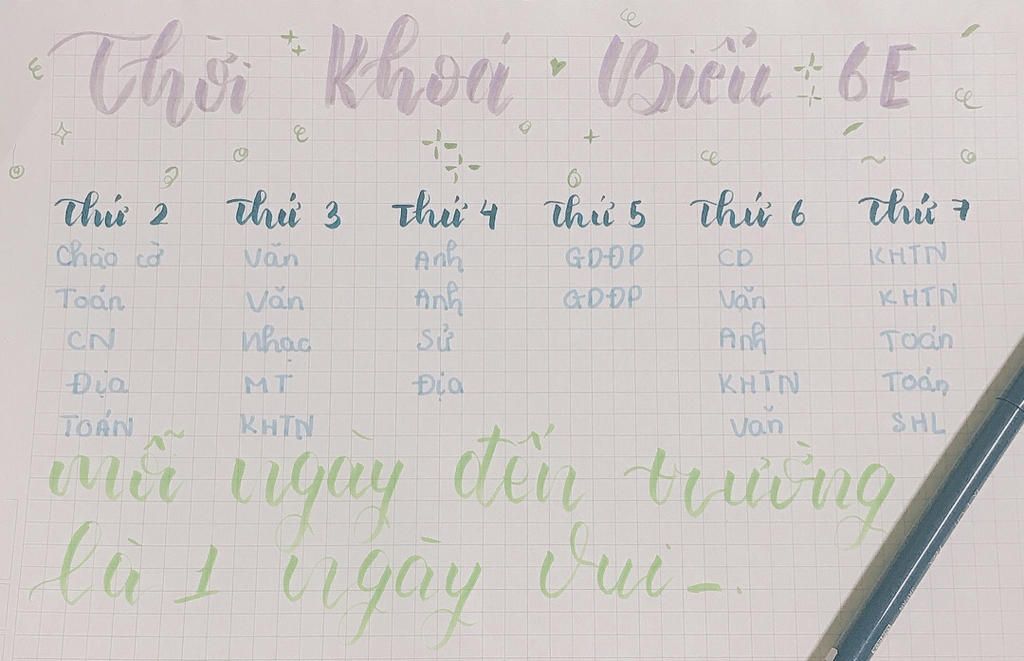 Thời Khoá Biểu 6E
Thứ 2 Thứ 3 Thứ 4 Thứ 5 Thứ 6 Thứ 7
Chào cờ Văn Anh GDĐP CD KHTN
Toán Văn Anh GDĐP Văn KHTN
CN Nhạc Sử Anh Toán
Địa MT Địa KHTN Toán
TOÁN KHTN Văn SHL
mỗi ngày đến trường
là 1 ngày vui_.